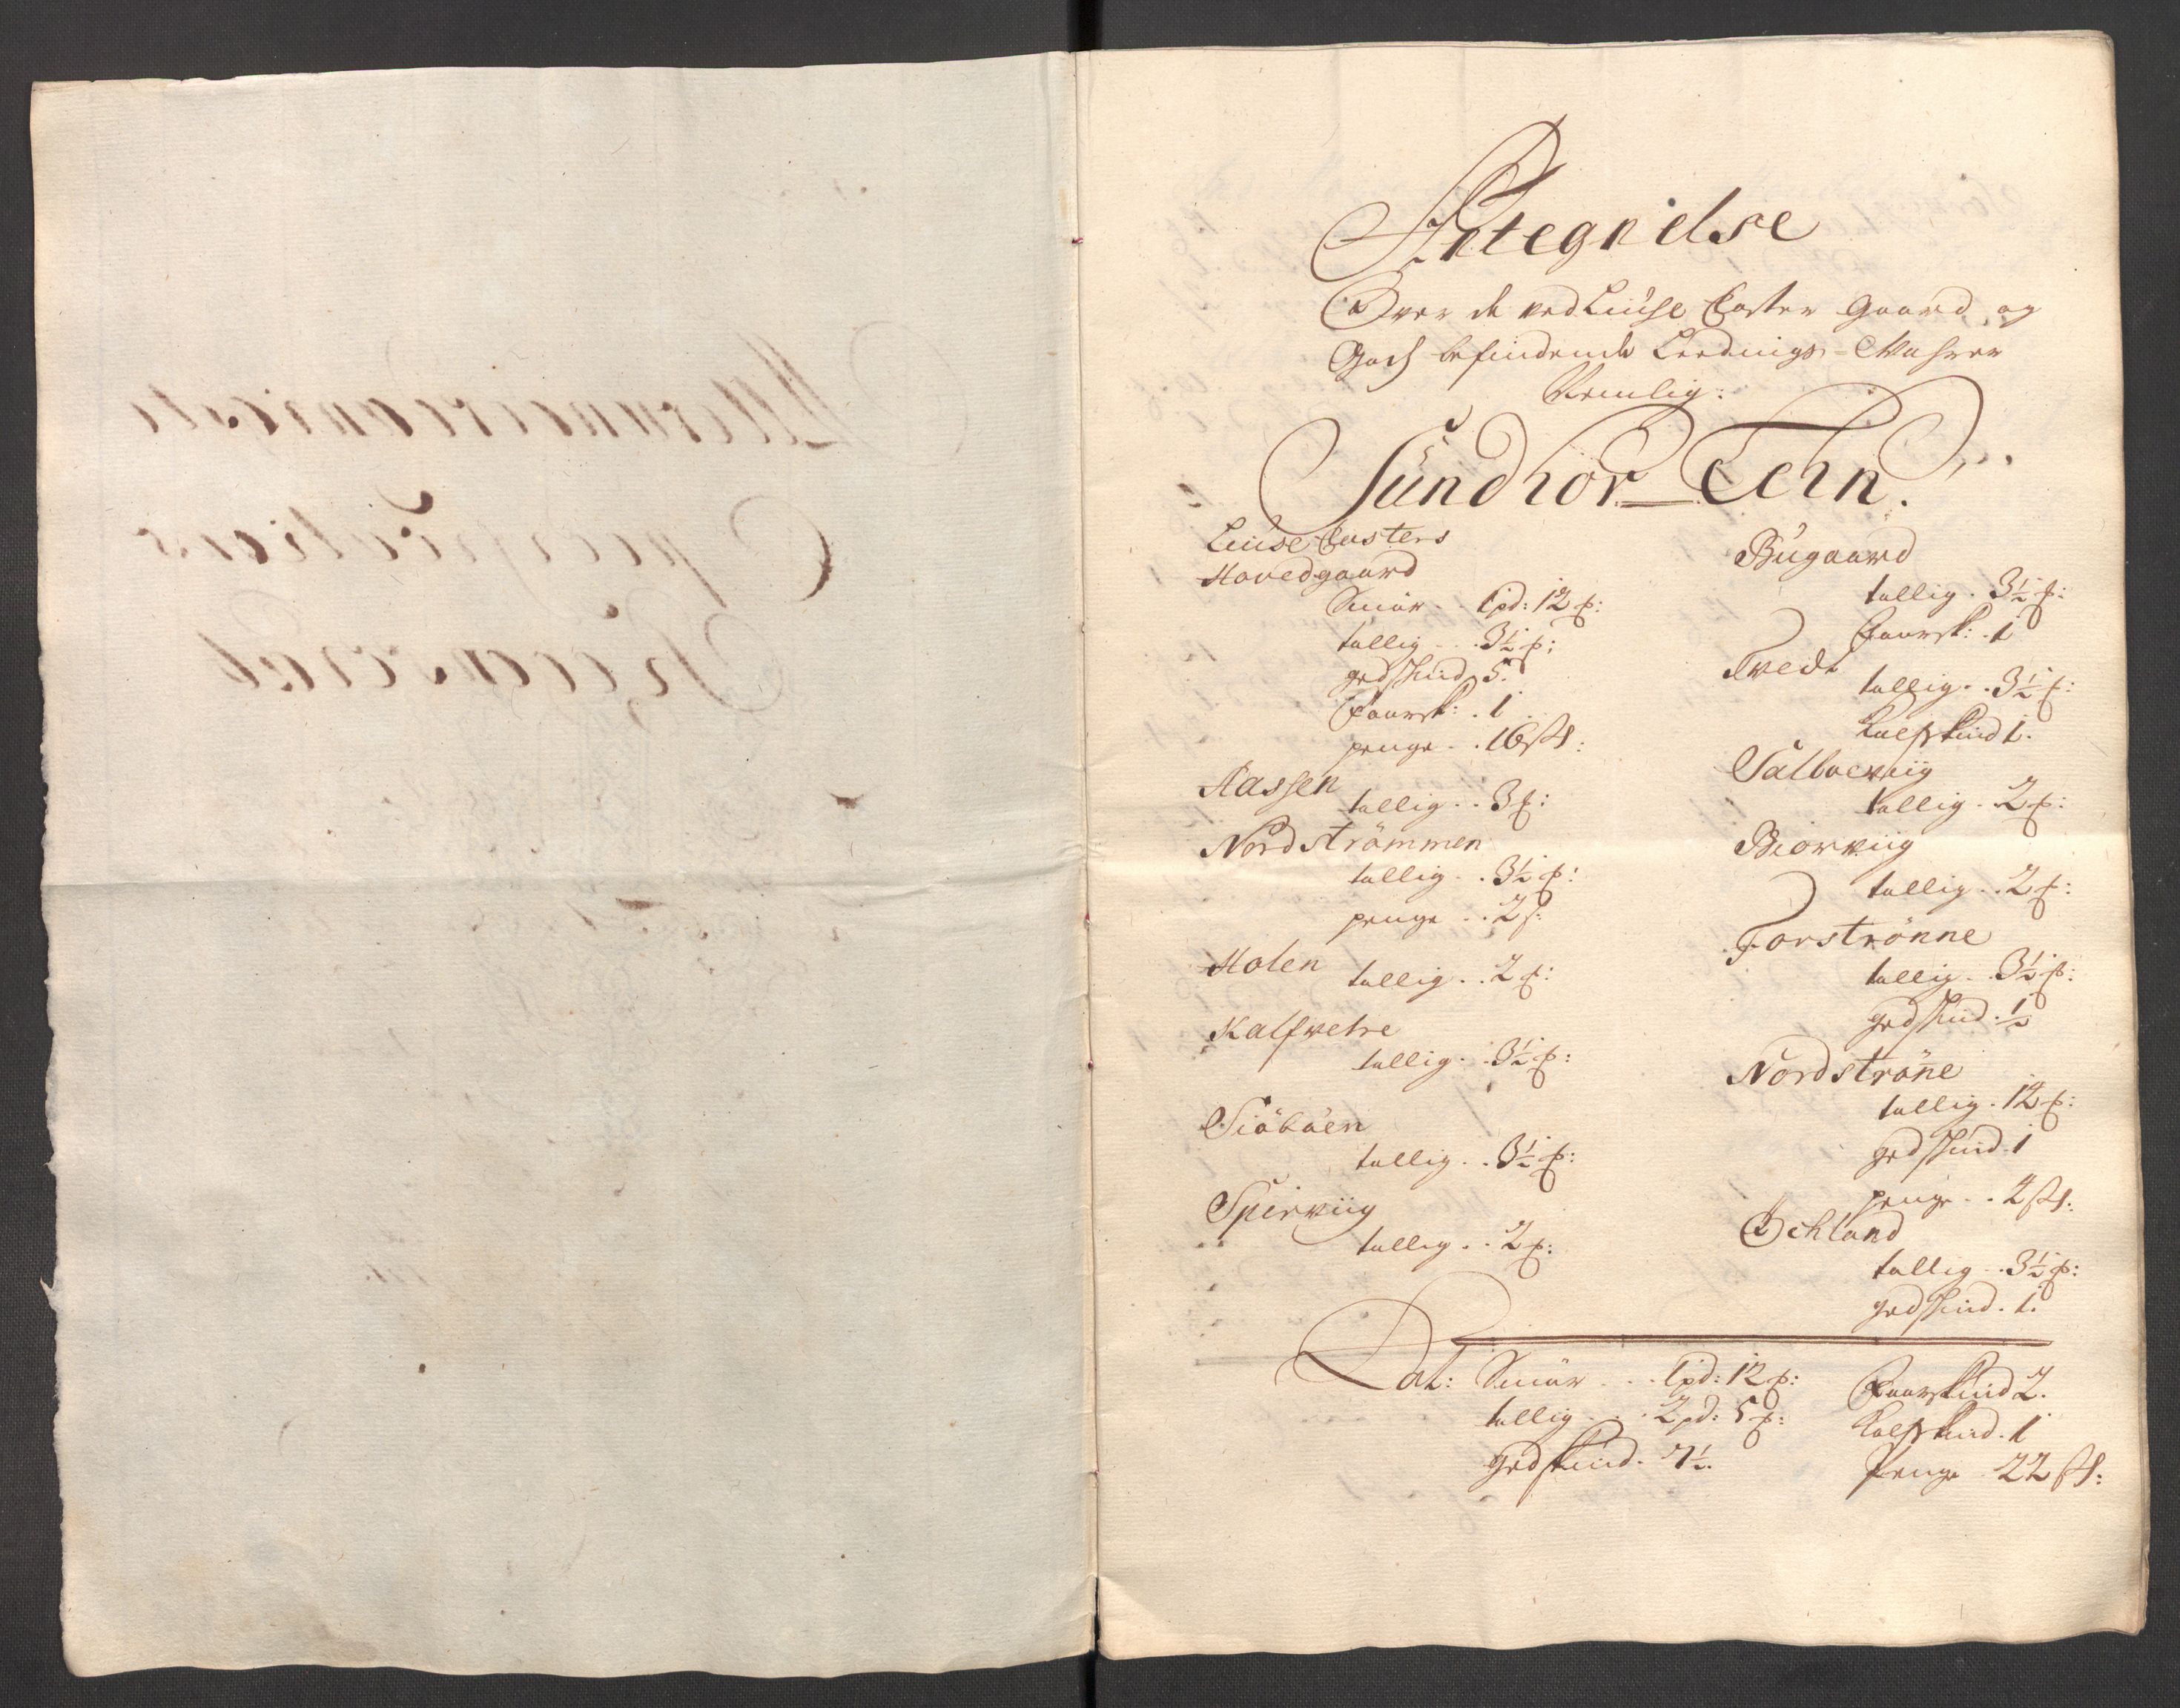 Antegnelse
Over de ved Liuse Closter Gaard og
Gods befindende Leedings-Wahrer
Nemlig:
Sundhör Lehn.
Liuse Closters
Hovedgaard
Smör . . 1 pd: 12 ℔:
tallig . . 3½ ℔:
gedskind 5.
Faarsk: . 1
penge . . 16 ſs:
Aassen
tallig . . 3 ℔:
Nordströmmen
tallig . . 3½ ℔:
penge . . 2 s:
Holen
tallig . . 2 ℔:
Kalfvetre
tallig . . 3½ ℔:
Siöböen
tallig . . 3½ ℔:
Speirviig
tallig . . 2 ℔:
Bugaard
tallig . 3½ ℔:
Faarsk: . 1
Tvedt
tallig . . 3½ ℔:
Kalfskind 1.
Salbueviig
tallig . 2 ℔:
Biorviig
tallig . . 2 ℔:
Forströnne
tallig . . 3½ ℔:
gedskind . ½
Nordströne
tallig . 12 ℔:
gedskind . 1
penge . . 4 ſs:
Öchland
tallig . . 3½ ℔:
gedskind . 1.
Lat: Smör . . . 1 pd: 12 ℔: Faarskind 2.
tallig . . . 2 pd: 5 ℔: Kalfskind . 1
gedskind . 7½. Penge 22 ſs: